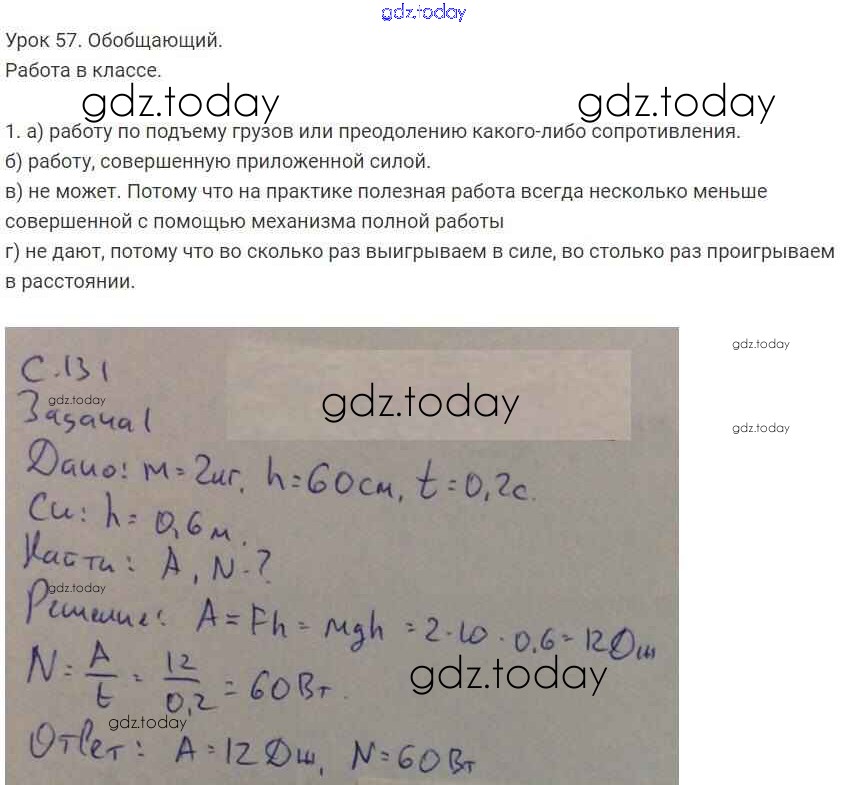 gdz.today
Урок 57. Обобщающий.
Работа в классе.
gdz.today gdz.today
1. а) работу по подъему грузов или преодолению какого-либо сопротивления.
б) работу, совершенную приложенной силой.
в) не может. Потому что на практике полезная работа всегда несколько меньше
совершенной с помощью механизма полной работы
г) не дают, потому что во сколько раз выигрываем в силе, во столько раз проигрываем
в расстоянии.
gdz.today
С. 131
gdz.today
gdz.today
Задача 1
gdz.today
Дано: m = 2кг, h = 60см, t = 0,2с.
Си: h = 0,6м.
Найти: A, N - ?
gdz.today
Решение: A = Fh = mgh = 2·10·0,6 = 12Дж
N = A/t = 12/0,2 = 60Вт.
gdz.today
gdz.today
Ответ: A = 12Дж, N = 60Вт